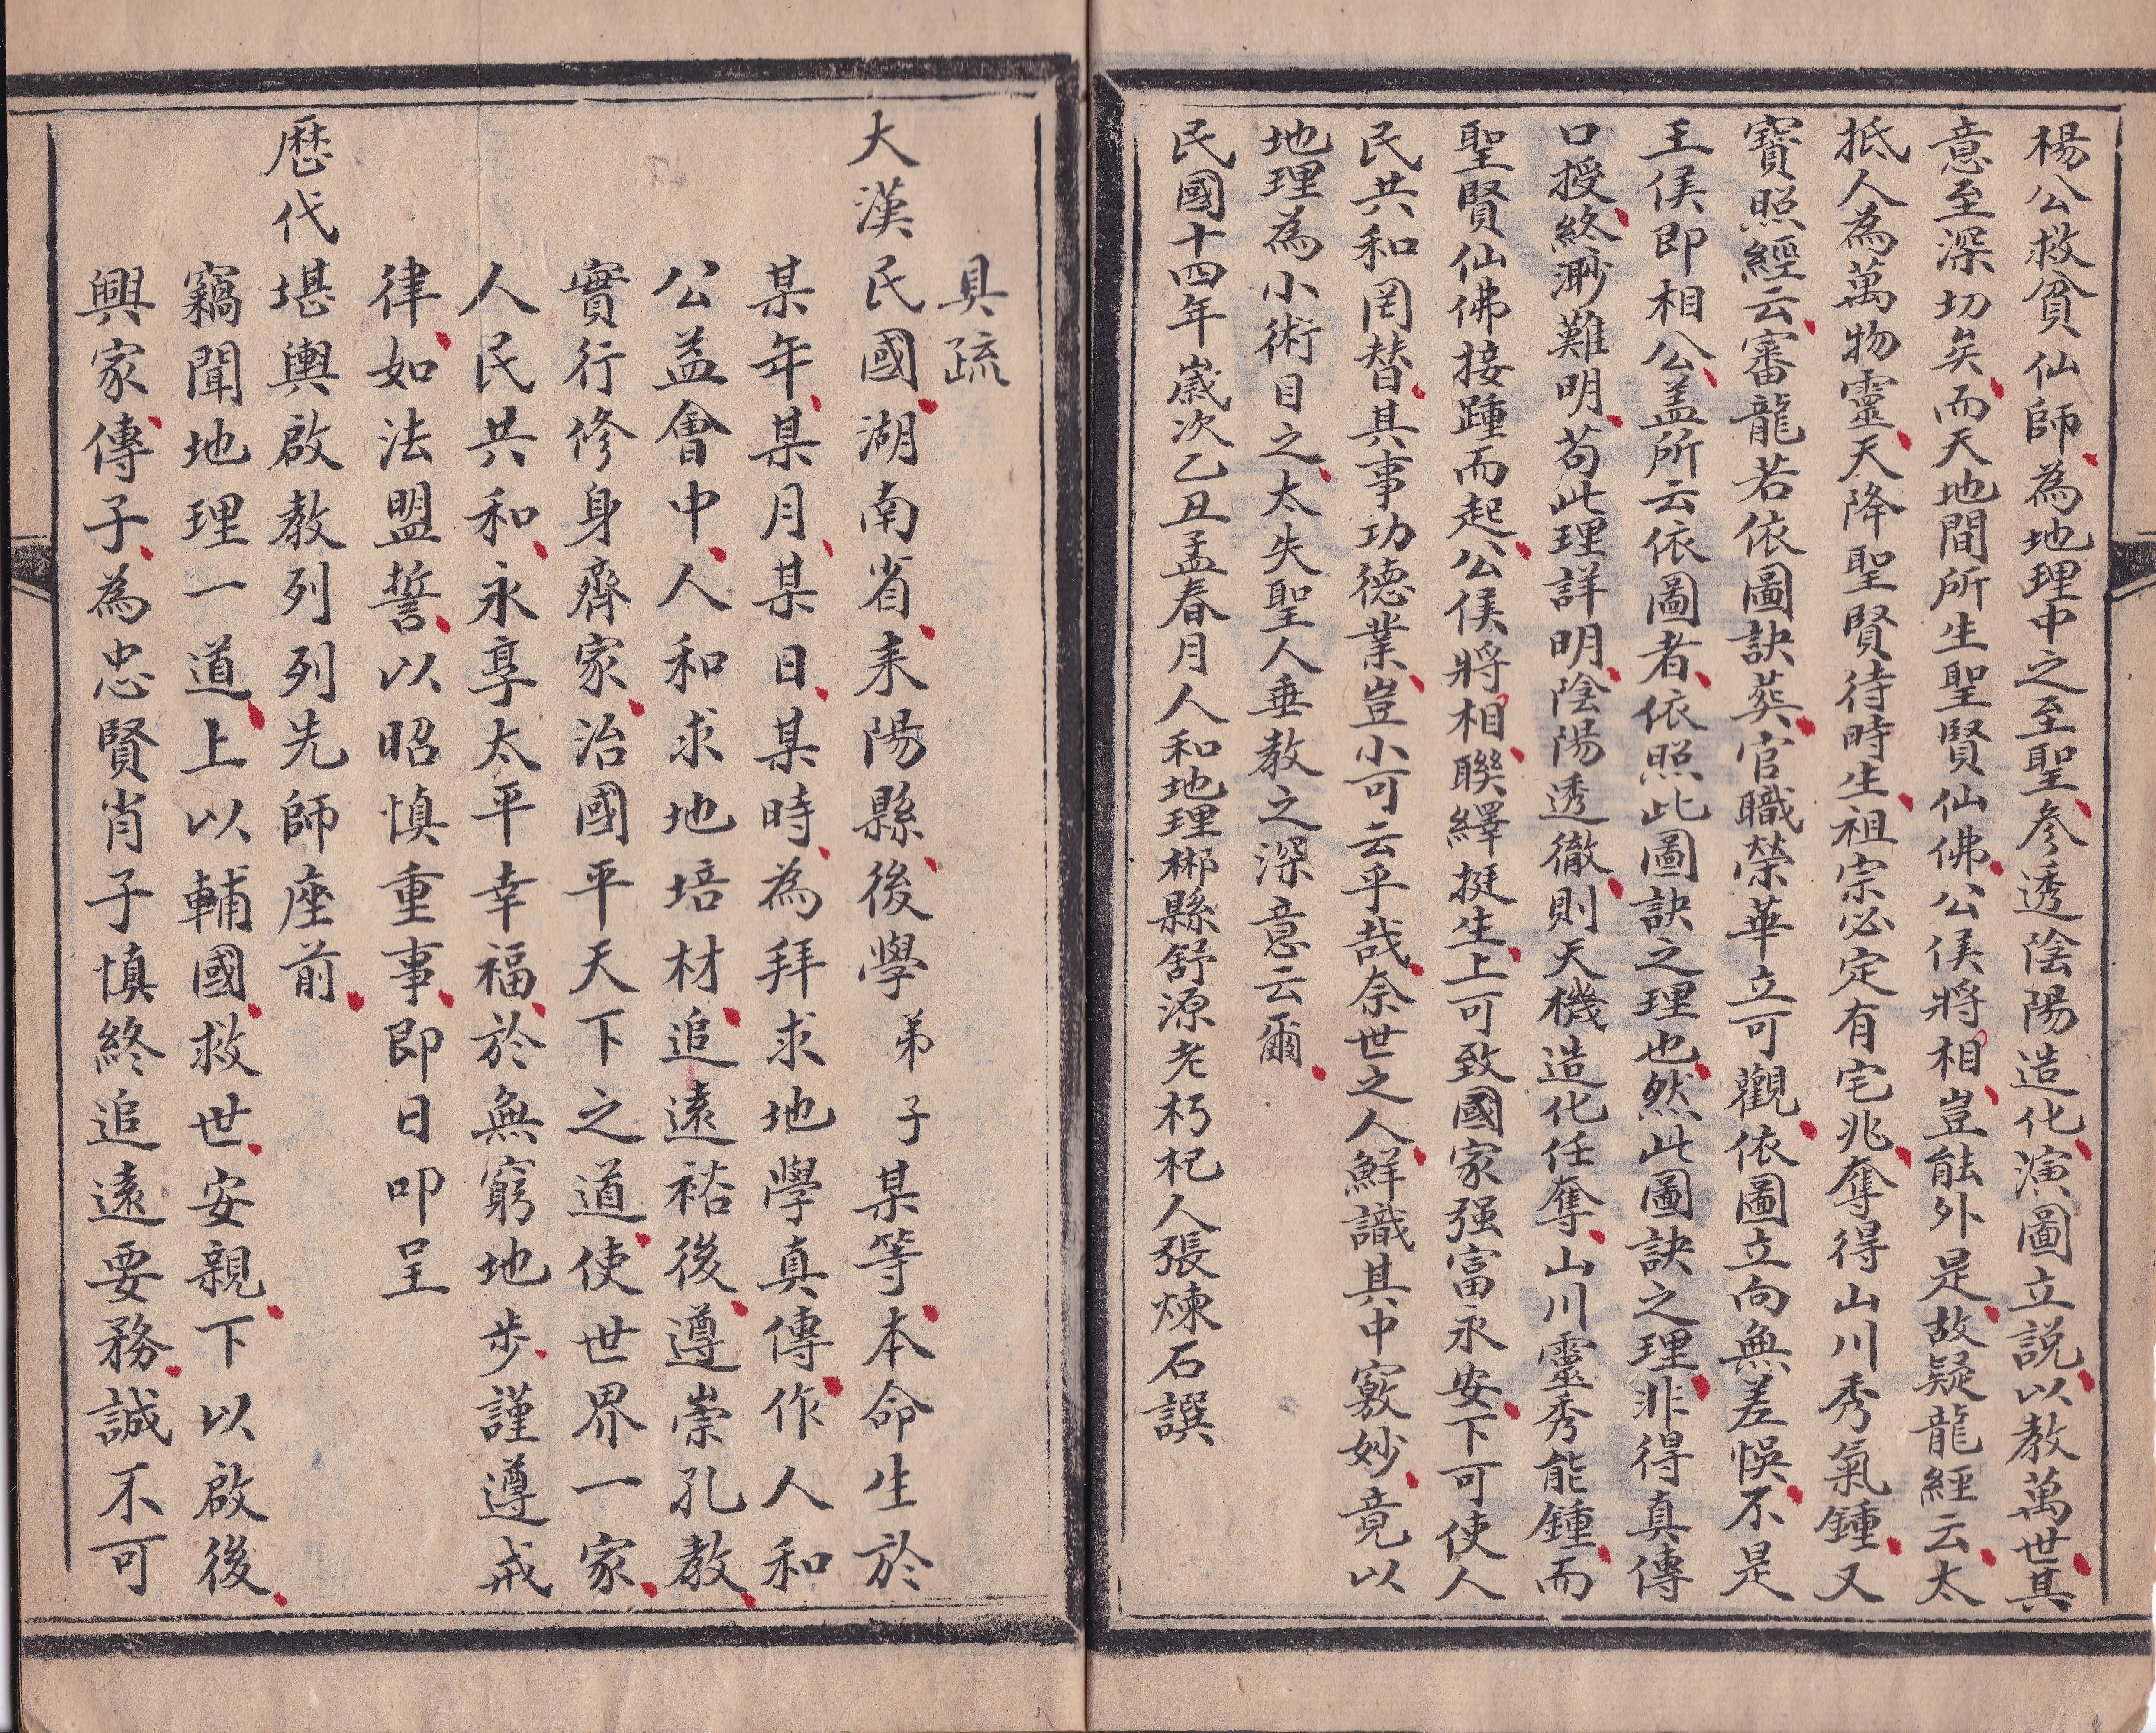 楊公救貧仙師為地理中之至聖參透陰陽造化演圖立説以教萬世其
意至深切矣而天地間所生聖賢仙佛公侯將相豈能外是故疑龍經云太
抵人為萬物靈天降聖賢待時生祖宗必定有宅兆奪得山川秀氣鍾又
寶照經云審龍若依圖訣葬官職榮華立可觀依圖立向無差悞不是
王侯即相公盖所云依圖者依照此圖訣之理也然此圖訣之理非得真傳
口授終渺難明苟此理詳明陰陽透徹則天機造化任奪山川靈秀能鍾而
聖賢仙佛接踵而起公侯將相聯繹挺生上可致國家强富永安下可使人
民共和罔替其事功德業豈小可云乎哉奈世之人鮮識其中竅妙竟以
地理為小術目之太失聖人垂教之深意云爾
民國十四年嵗次乙丑孟春月人和地理郴縣舒源老朽杞人張煉石譔
具疏
大漢民國湖南省耒陽縣後學弟子某等本命生於
某年某月某日某時為拜求地學真傳作人和
公益會中人和求地培材追遠裕後遵崇孔教
實行修身齊家治國平天下之道使世界一家
人民共和永享太平幸福於無窮地步謹遵戒
律如法盟誓以昭慎重事即日叩呈
歴代堪輿啟教列列先師座前
竊聞地理一道上以輔國救世安親下以啟後
興家傳子為忠賢肖子慎終追遠要務誠不可